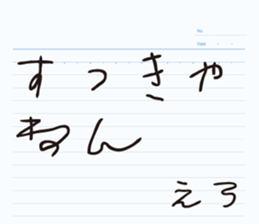 No.
Date
すっきゃ
ねん
えろ